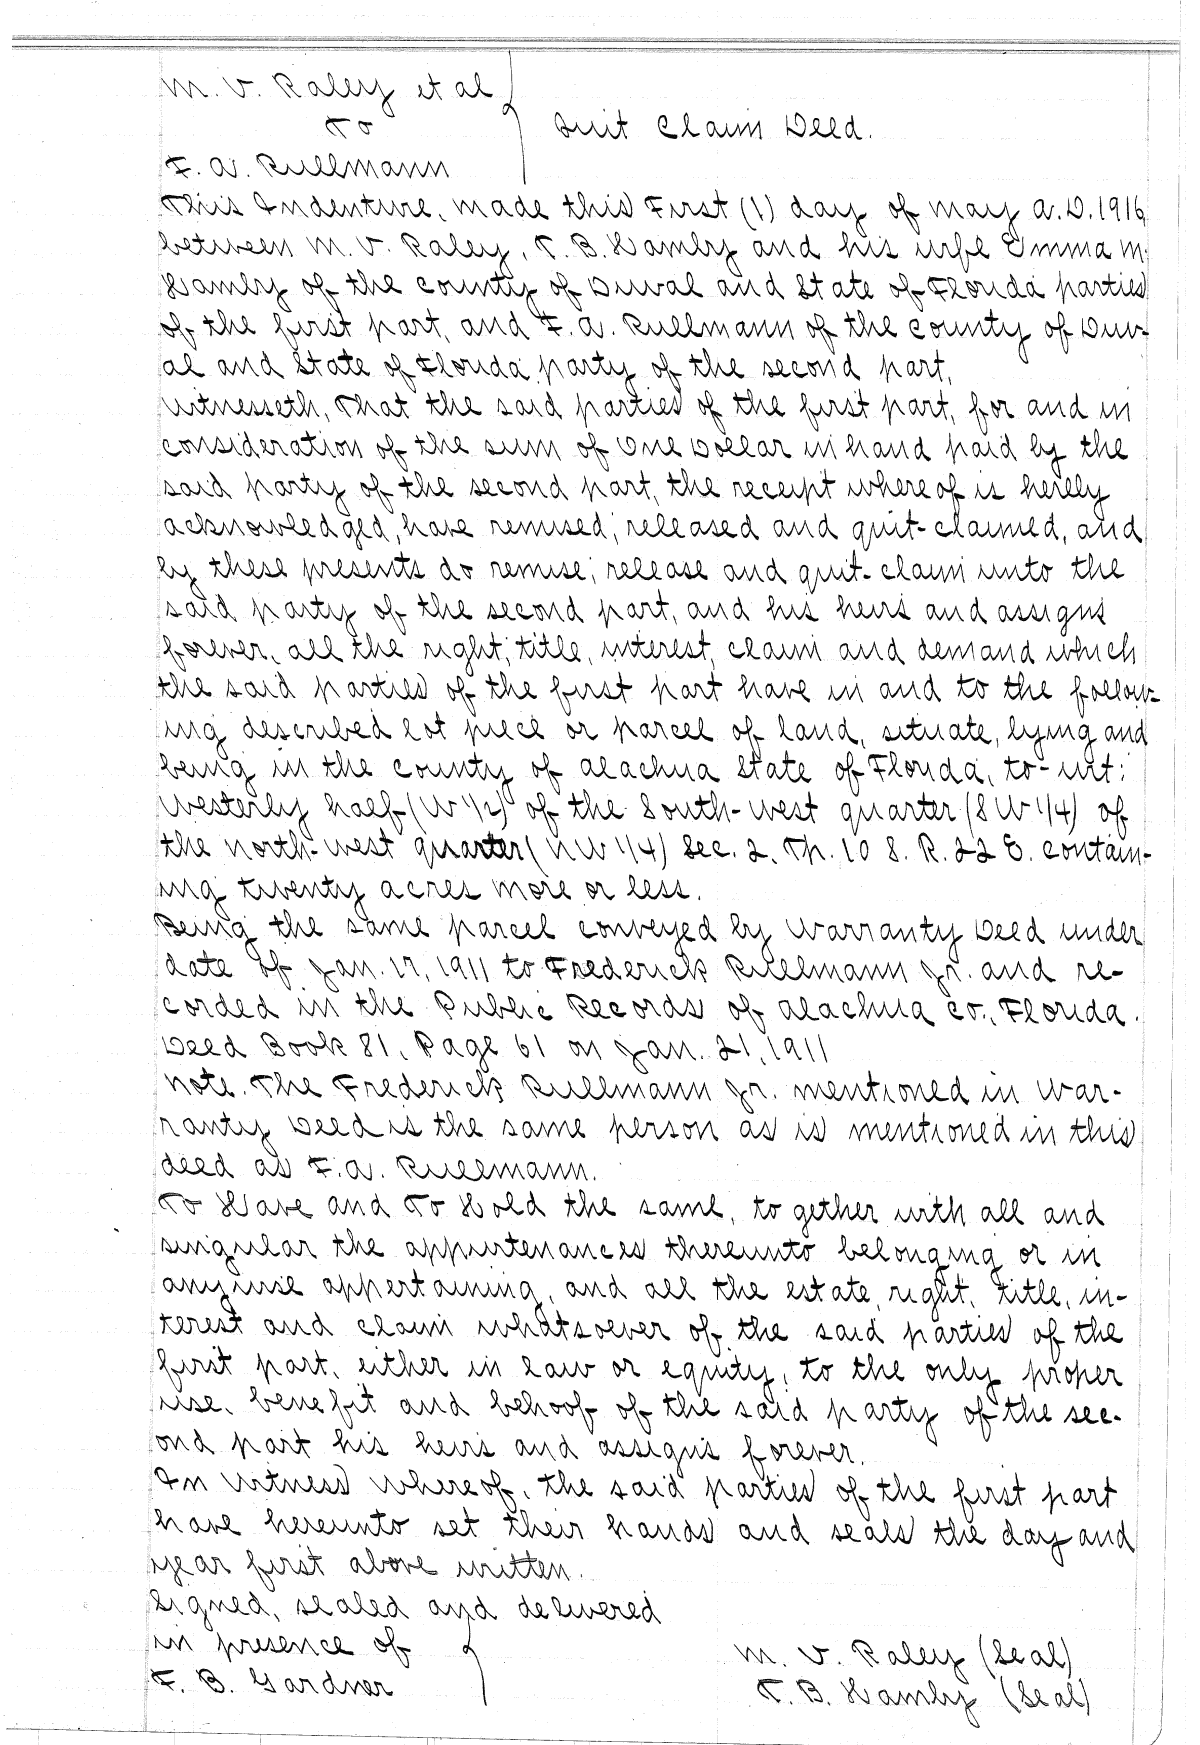 M. V. Raley et al
To
Quit Claim Deed.
F. A. Rullmann
This Indenture, made this First (1) day of May A.D. 1916
between M. V. Raley, T. B. Hamby and his wife Emma M.
Hamby of the county of Duval and State of Florida parties
of the first part, and F. A. Rullmann of the county of Duv-
al and State of Florida party of the second part,
Witnesseth, That the said parties of the first part, for and in
consideration of the sum of One Dollar in hand paid by the
said party of the second part, the receipt whereof is hereby
acknowledged, have remised, released and quit-claimed, and
by these presents do remise, release and quit-claim unto the
said party of the second part, and his heirs and assigns
forever, all the right, title, interest, claim and demand which
the said parties of the first part have in and to the follow-
ing described lot piece or parcel of land, situate, lying and
being in the county of Alachua State of Florida, to-wit:
Westerly half (W 1/2) of the South-west quarter (S W 1/4) of
the North-west quarter (N W 1/4) Sec. 2, Tp. 10 S. R. 22 E. contain-
ing twenty acres more or less.
Being the same parcel conveyed by Warranty Deed under
date of Jan. 17, 1911 to Frederick Rullmann Jr. and re-
corded in the Public Records of Alachua Co., Florida.
Deed Book 81, Page 61 on Jan. 21, 1911
Note. The Frederick Rullmann Jr. mentioned in War-
ranty Deed is the same person as is mentioned in this
deed as F. A. Rullmann.
To Have and To Hold the same, to gether with all and
singular the appurtenances thereunto belonging or in
anywise appertaining, and all the estate, right, title, in-
terest and claim whatsoever of the said parties of the
first part, either in law or equity, to the only proper
use, benefit and behoof of the said party of the sec-
ond part his heirs and assigns forever.
In Witness whereof, the said parties of the first part
have hereunto set their hands and seals the day and
year first above written.
Signed, sealed and delivered
in presence of
M. V. Raley (Seal)
F. B. Gardner
T. B. Hamby (Seal)